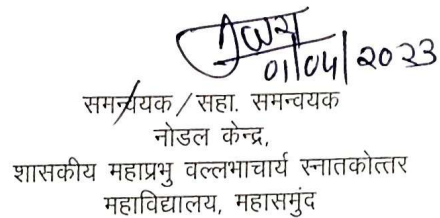 01/04/2023
समन्वयक / सहा. समन्वयक
नोडल केन्द्र,
शासकीय महाप्रभु वल्लभाचार्य स्नातकोत्तर
महाविद्यालय, महासमुंद